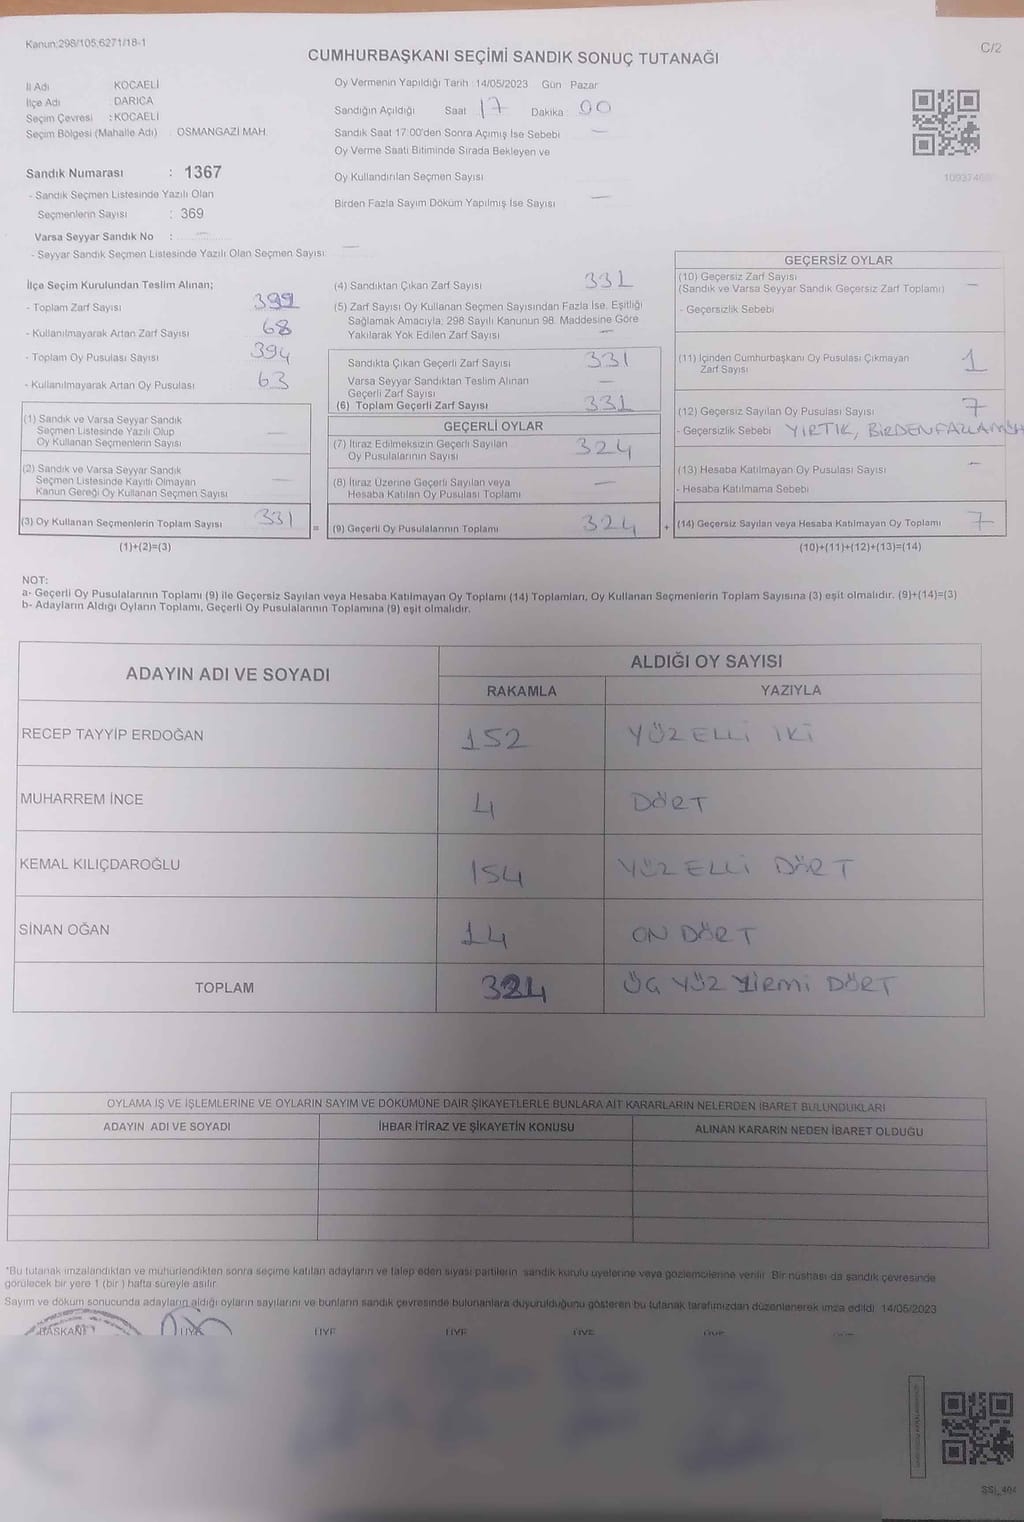 Kanun:298/105,6271/18-1
C/2
CUMHURBAŞKANI SEÇİMİ SANDIK SONUÇ TUTANAĞI
İl Adı KOCAELİ
İlçe Adı DARICA
Seçim Çevresi : KOCAELİ
Seçim Bölgesi (Mahalle Adı) : OSMANGAZİ MAH.
Oy Vermenin Yapıldığı Tarih 14/05/2023 Gün Pazar
Sandığın Açıldığı Saat 17 Dakika : 00
Sandık Saat 17:00'den Sonra Açımış İse Sebebi —
Oy Verme Saati Bitiminde Sırada Bekleyen ve
Oy Kullandırılan Seçmen Sayısı
Birden Fazla Sayım Döküm Yapılmış İse Sayısı —
Sandık Numarası : 1367
- Sandık Seçmen Listesinde Yazılı Olan
Seçmenlerin Sayısı : 369
Varsa Seyyar Sandık No : —
- Seyyar Sandık Seçmen Listesinde Yazılı Olan Seçmen Sayısı: —
İlçe Seçim Kurulundan Teslim Alınan;
- Toplam Zarf Sayısı 399
- Kullanılmayarak Artan Zarf Sayısı 68
- Toplam Oy Pusulası Sayısı 394
- Kullanılmayarak Artan Oy Pusulası 63
(1) Sandık ve Varsa Seyyar Sandık
Seçmen Listesinde Yazılı Olup
Oy Kullanan Seçmenlerin Sayısı —
(2) Sandık ve Varsa Seyyar Sandık
Seçmen Listesinde Kayıtlı Olmayan
Kanun Gereği Oy Kullanan Seçmen Sayısı —
(3) Oy Kullanan Seçmenlerin Toplam Sayısı 331
(1)+(2)=(3)
(4) Sandıktan Çıkan Zarf Sayısı 331
(5) Zarf Sayısı Oy Kullanan Seçmen Sayısından Fazla İse, Eşitliği
Sağlamak Amacıyla; 298 Sayılı Kanunun 98. Maddesine Göre
Yakılarak Yok Edilen Zarf Sayısı —
Sandıkta Çıkan Geçerli Zarf Sayısı 331
Varsa Seyyar Sandıktan Teslim Alınan
Geçerli Zarf Sayısı —
(6) Toplam Geçerli Zarf Sayısı 331
GEÇERLİ OYLAR
(7) İtiraz Edilmeksizin Geçerli Sayılan
Oy Pusulalarının Sayısı 324
(8) İtiraz Üzerine Geçerli Sayılan veya
Hesaba Katılan Oy Pusulası Toplamı —
= (9) Geçerli Oy Pusulalarının Toplamı 324
GEÇERSİZ OYLAR
(10) Geçersiz Zarf Sayısı
(Sandık ve Varsa Seyyar Sandık Geçersiz Zarf Toplamı) —
- Geçersizlik Sebebi
(11) İçinden Cumhurbaşkanı Oy Pusulası Çıkmayan
Zarf Sayısı 1
(12) Geçersiz Sayılan Oy Pusulası Sayısı 7
- Geçersizlik Sebebi YIRTIK, BİRDEN FAZLA
(13) Hesaba Katılmayan Oy Pusulası Sayısı —
- Hesaba Katılmama Sebebi
+ (14) Geçersiz Sayılan veya Hesaba Katılmayan Oy Toplamı 7
(10)+(11)+(12)+(13)=(14)
NOT:
a- Geçerli Oy Pusulalarının Toplamı (9) ile Geçersiz Sayılan veya Hesaba Katılmayan Oy Toplamı (14) Toplamları, Oy Kullanan Seçmenlerin Toplam Sayısına (3) eşit olmalıdır. (9)+(14)=(3)
b- Adayların Aldığı Oyların Toplamı, Geçerli Oy Pusulalarının Toplamına (9) eşit olmalıdır.
ADAYIN ADI VE SOYADI ALDIĞI OY SAYISI
RAKAMLA YAZIYLA
RECEP TAYYİP ERDOĞAN 152 YÜZ ELLİ İKİ
MUHARREM İNCE 4 DÖRT
KEMAL KILIÇDAROĞLU 154 YÜZ ELLİ DÖRT
SİNAN OĞAN 14 ON DÖRT
TOPLAM 324 ÜÇ YÜZ YİRMİ DÖRT
OYLAMA İŞ VE İŞLEMLERİNE VE OYLARIN SAYIM VE DÖKÜMÜNE DAİR ŞİKAYETLERLE BUNLARA AİT KARARLARIN NELERDEN İBARET BULUNDUKLARI
ADAYIN ADI VE SOYADI İHBAR İTİRAZ VE ŞİKAYETİN KONUSU ALINAN KARARIN NEDEN İBARET OLDUĞU
*Bu tutanak imzalandıktan ve mühürlendikten sonra seçime katılan adayların ve talep eden siyasi partilerin sandık kurulu üyelerine veya gözlemcilerine verilir. Bir nüshası da sandık çevresinde
görülecek bir yere 1 (bir ) hafta süreyle asılır.
Sayım ve döküm sonucunda adayların aldığı oyların sayılarını ve bunların sandık çevresinde bulunanlara duyurulduğunu gösteren bu tutanak tarafımızdan düzenlenerek imza edildi. 14/05/2023
BAŞKAN ÜYE ÜYE ÜYE ÜYE